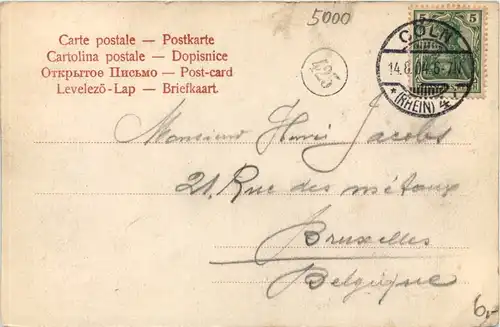 5000
Carte postale — Postkarte
Cartolina postale — Dopisnice
Открытое Письмо — Post-card
Levelező-Lap — Briefkaart.
5 5
CÖLN
(RHEIN)
425
Monsieur Henri Jacobs
21, Rue des métaux
Bruxelles
Belgique
6,-